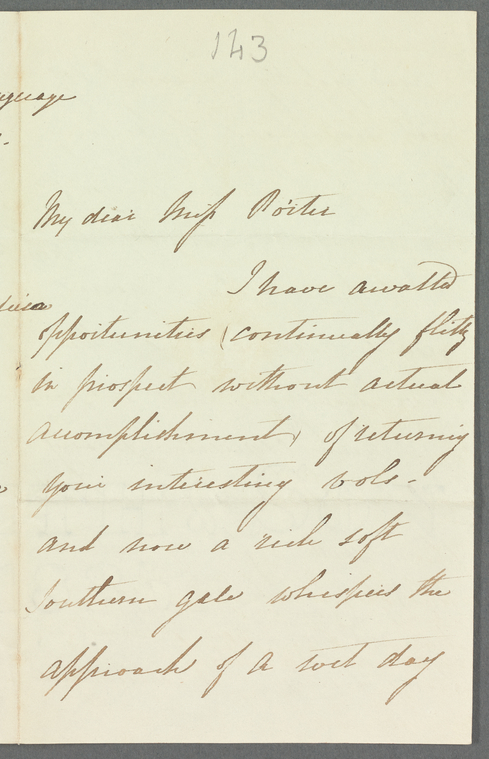 143
My dear Miss Porter
I have awaited
opportunities (continually
in prospect without actual
accomplishment) of returning
your interesting vols -
and now a rich soft
Southern gale whispers the
approach of a wet day